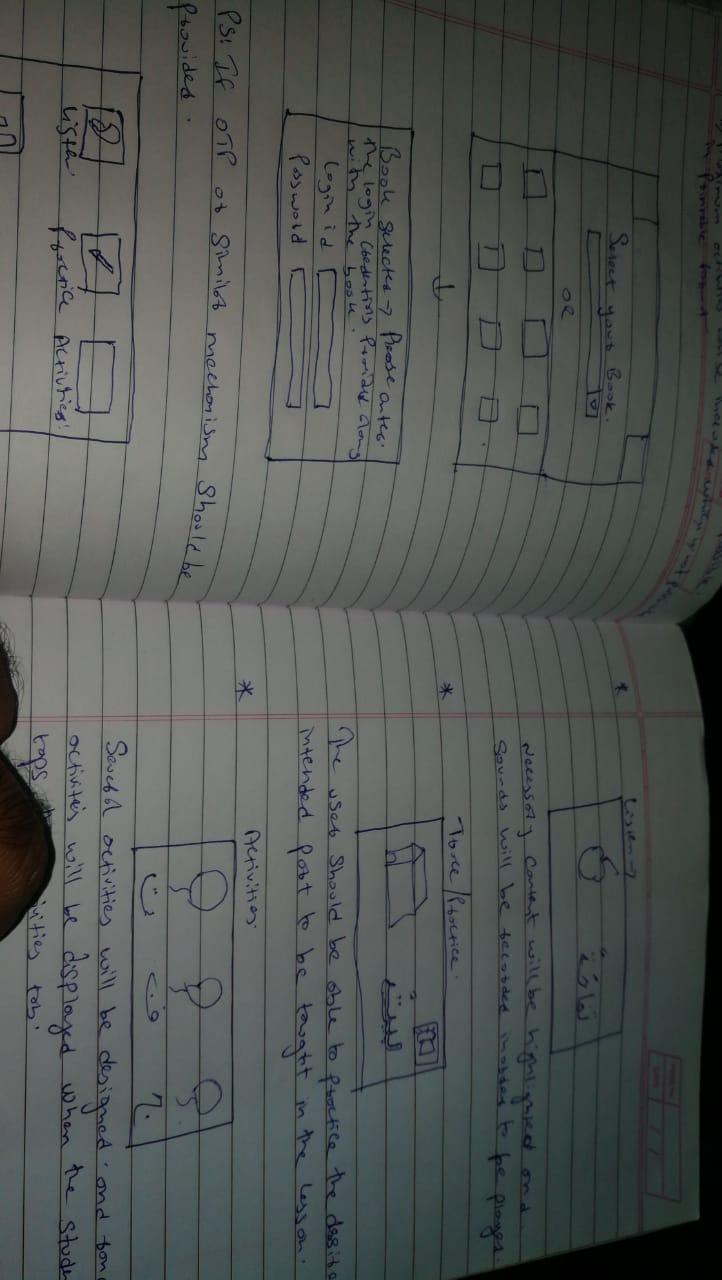 in Printable format
Select your Book.
OR
Book selected → Please enter
the login credentials Provided along
with the book.
Login id
Password
PS: If OTP or similar mechanism should be
Provided.
Listen Practice Activities.
* Listen →
Necessary content will be highlighted and
Sounds will be recorded inorder to be played
* Trace/Practice.
The user should be able to practice the
intended part to be taught in the lesson.
* Activities.
Several activities will be designed and
activities will be displayed when the Stude
taps
tab.